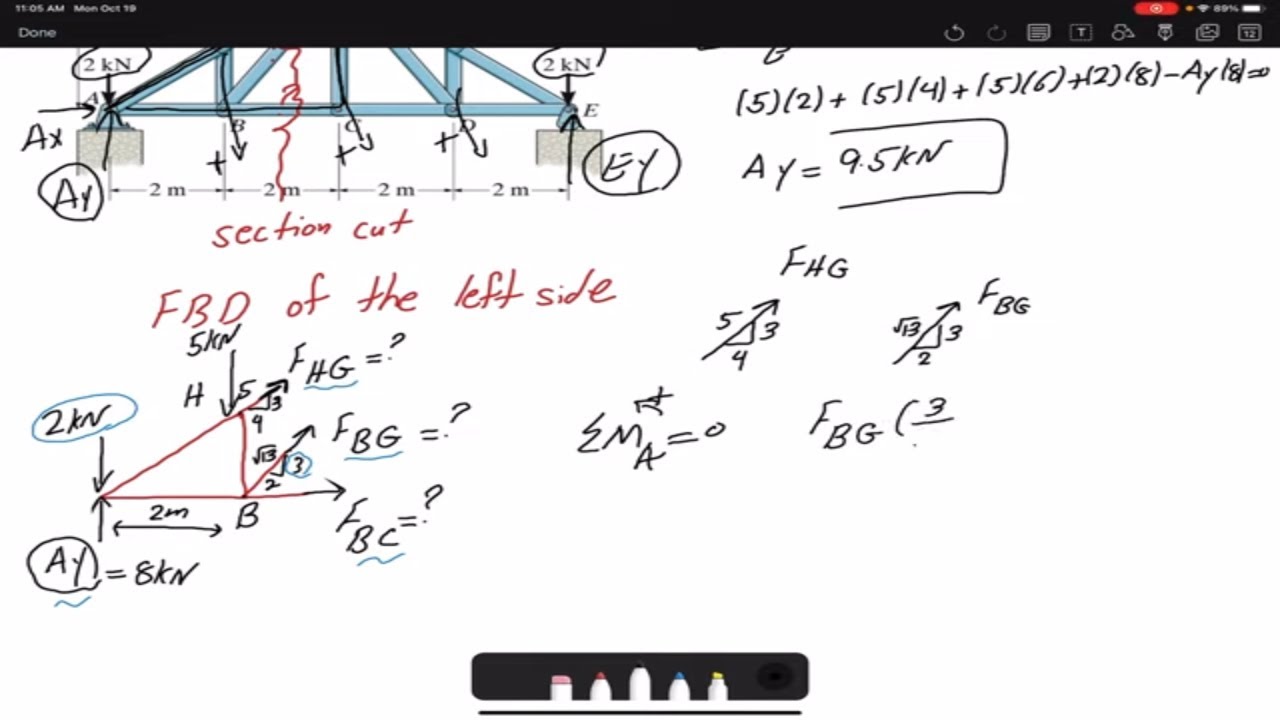 11:05 AM Mon Oct 19
89%
Done
2 kN
2 kN
A
B
C
D
E
Ax
Ay
+
+
+
Ey
2 m
2 m
2 m
2 m
section cut
(5)(2) + (5)(4) + (5)(6) + (2)(8) - Ay(8) = 0
Ay = 9.5kN
FBD of the left side
5kN
H
5
3
4
F_HG = ?
2kN
√13
3
2
F_BG = ?
2m
B
F_BC = ?
Ay = 8kN
F_HG
5
3
4
F_BG
√13
3
2
ΣM_A = 0 F_BG (3